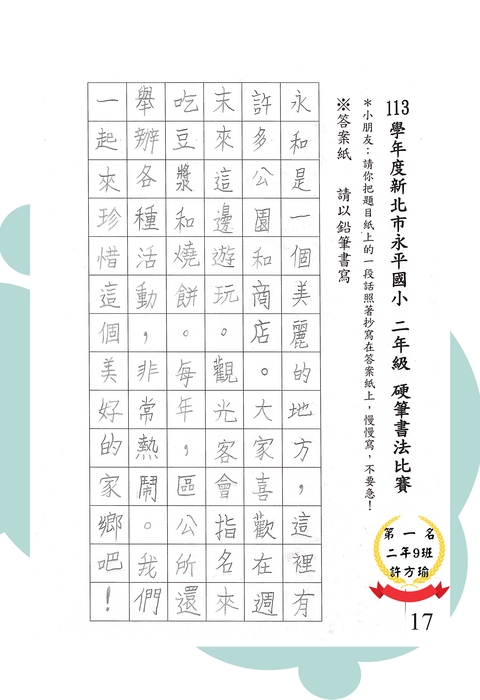 113學年度新北市永平國小 二年級 硬筆書法比賽
＊小朋友：請你把題目紙上的一段話照著抄寫在答案紙上，慢慢寫，不要急！
※答案紙 請以鉛筆書寫
永和是一個美麗的地方，這裡有
許多公園和商店。大家喜歡在週
末來這邊遊玩。觀光客會指名來
吃豆漿和燒餅。每年，區公所還
舉辦各種活動，非常熱鬧。我們
一起來珍惜這個美好的家鄉吧！
第一名
二年9班
許方瑜
17